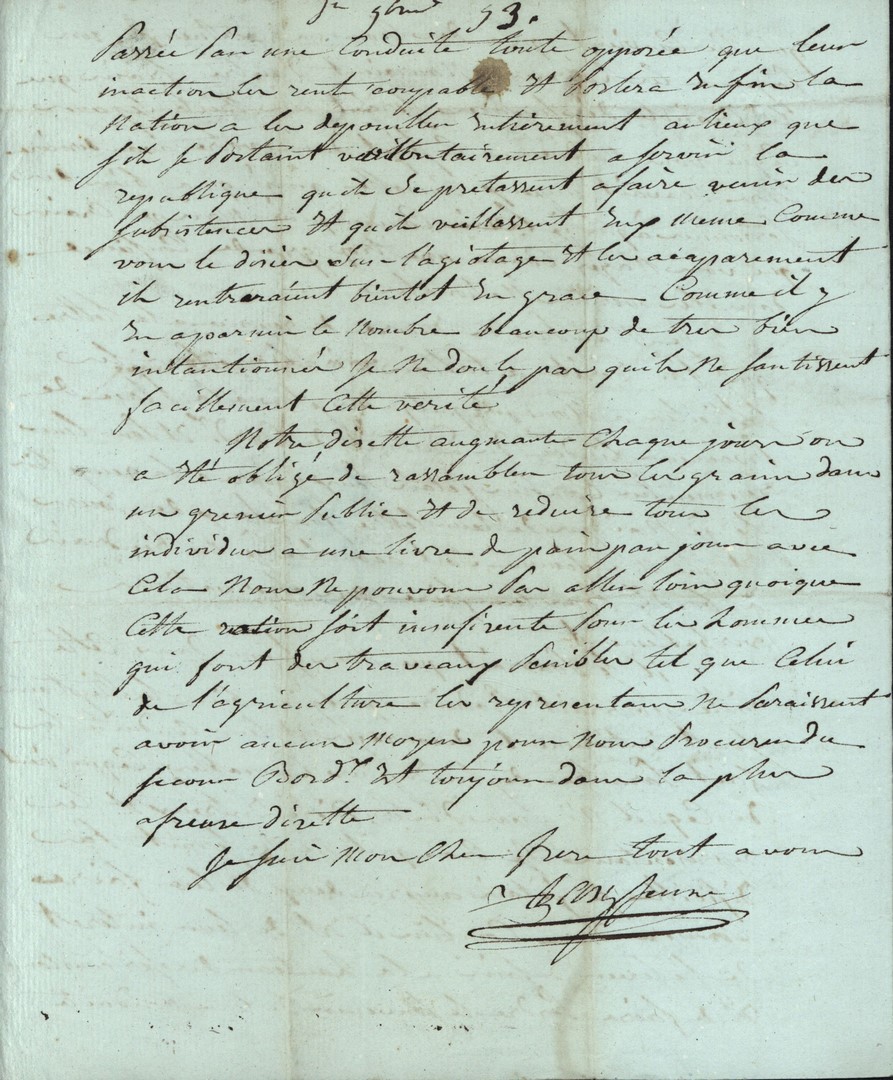 9bre 93.
passée par une Conduite toute opposée que leur
inaction les rent coupable et portera enfin la
nation a les depouiller entierement aulieux que
sils se portaint vollontairement a servir la
republique quils se pretassent a faire venir des
subsistences et quils veillassent eux meme Comme
vous le disiez sur l'agiotage et les acaparement
ils rentreraient bientot en grace Comme il y
en a parmis le nombre beaucoup de tres bien
intantionnés je ne doute pas quils ne santissent
facillement cette verité
Notre disette augmante chaque jours on
a été obligé de rassambler tous les grains dans
un grenier public et de reduire tous les
individus a une livre de pain par jour avec
cela nous ne pouvons pas aller loin quoique
Cette ration soit insufisente pour les hommes
qui font des traveaux penibles tel que Celui
de l'agriculture les representans ne paraissent
avoir aucun moyen pour nous procurer du
secours Bordx est toujours dans la plus
afreuse disette
Je suis mon cher frere tout a vous
Jeune